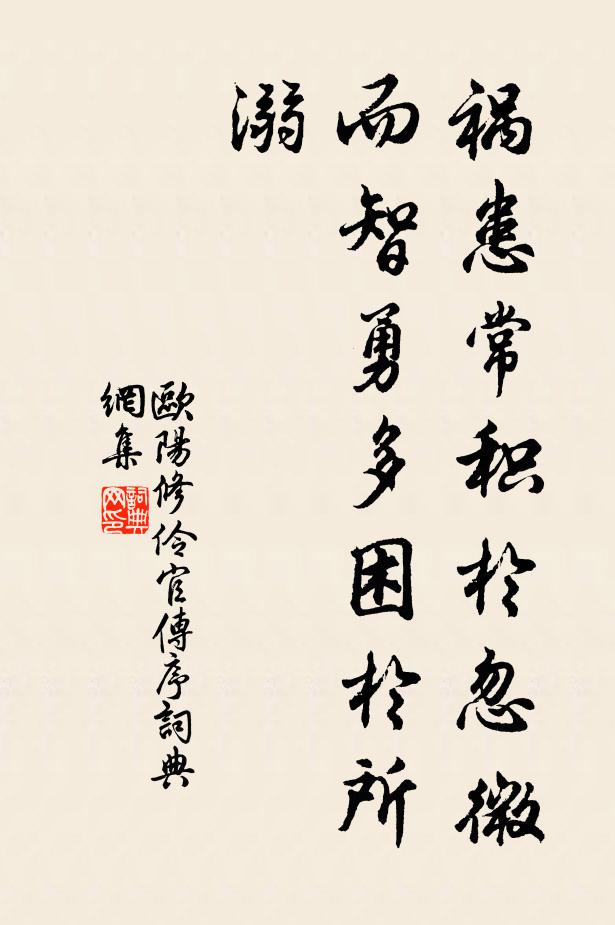 祸患常积於忽微
而智勇多困於所
溺
歐陽修伶官傳序詞典
網集
詞典网印